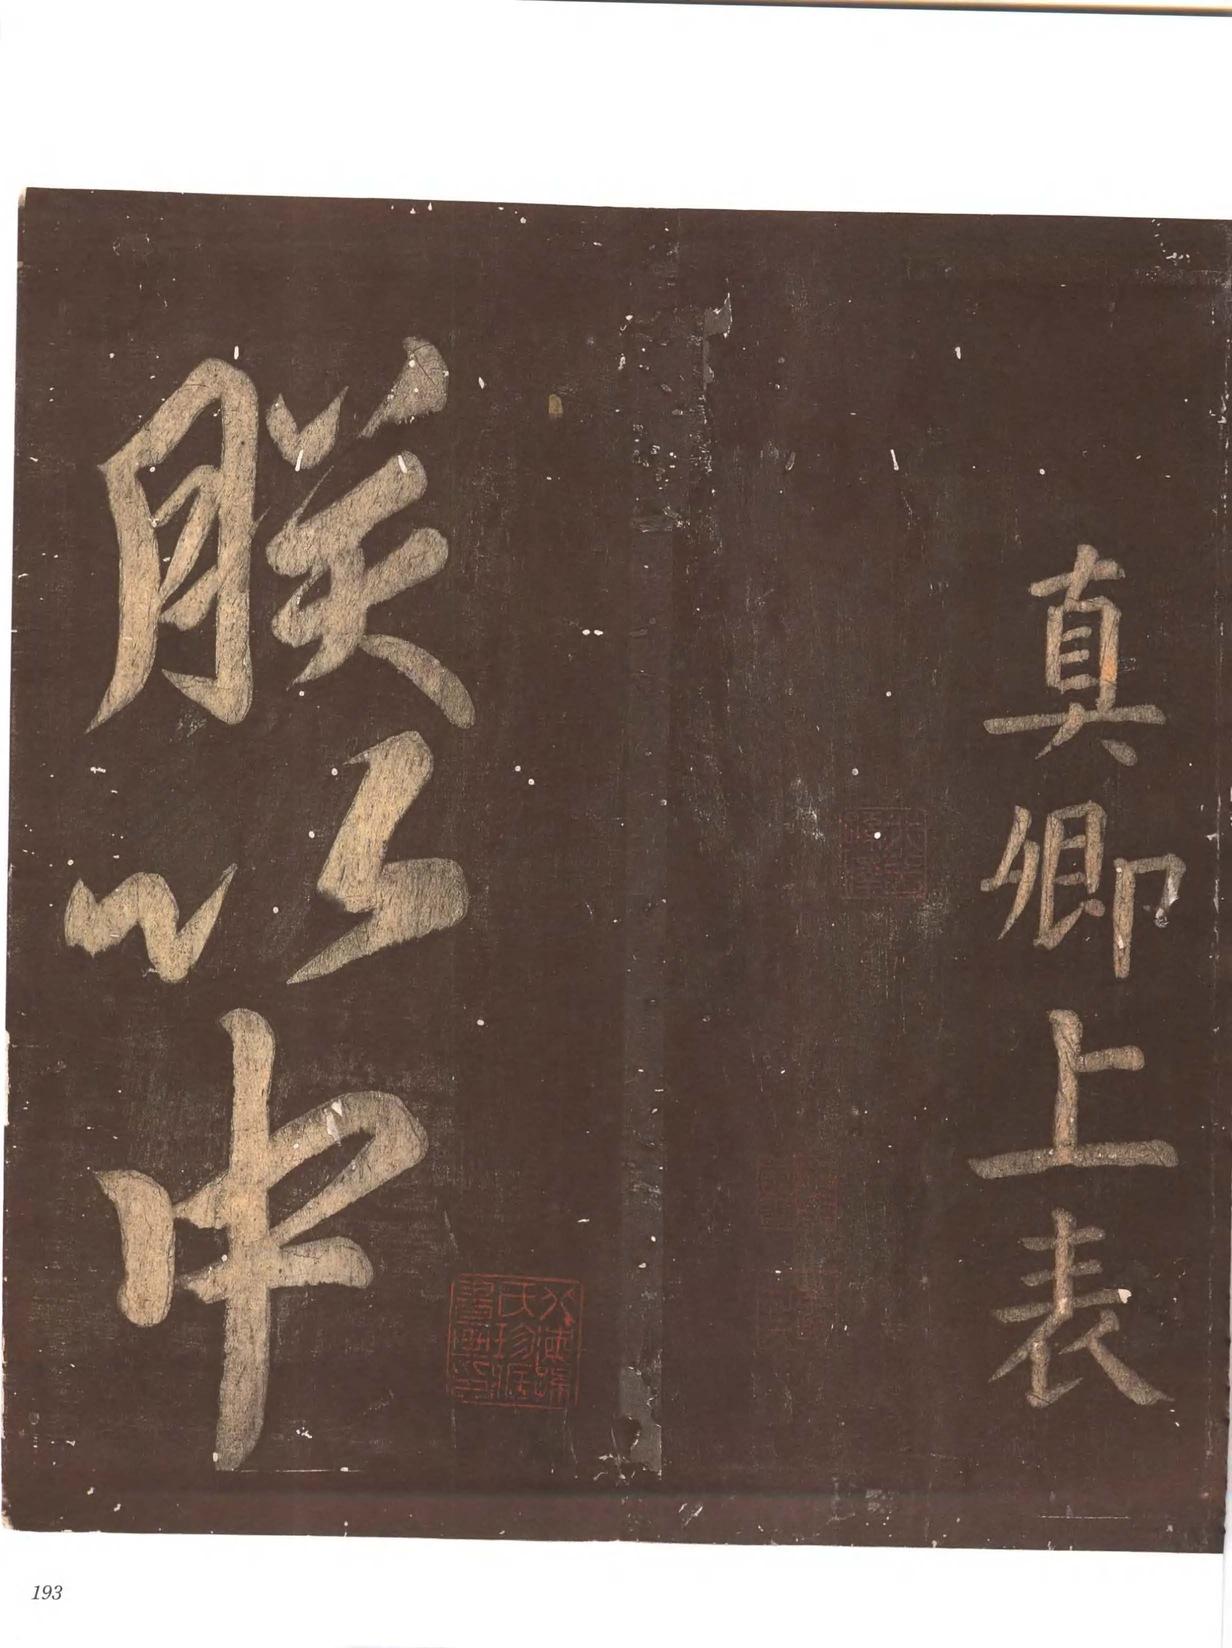 真卿上表
朕以中
193